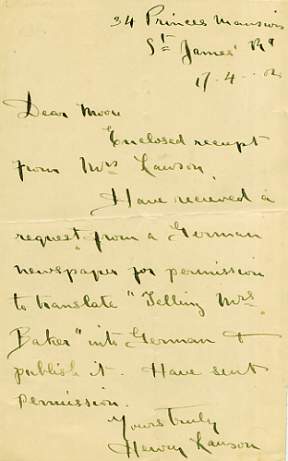 34 Princes Mansions
St James' Rd
17.4.02
Dear Moon
Enclosed receipt
from Mrs Lawson.
Have recieved a
request from a German
newspaper for permission
to translate "Telling Mrs
Baker" into German &
publish it. Have sent
permission.
Yours truly
Henry Lawson